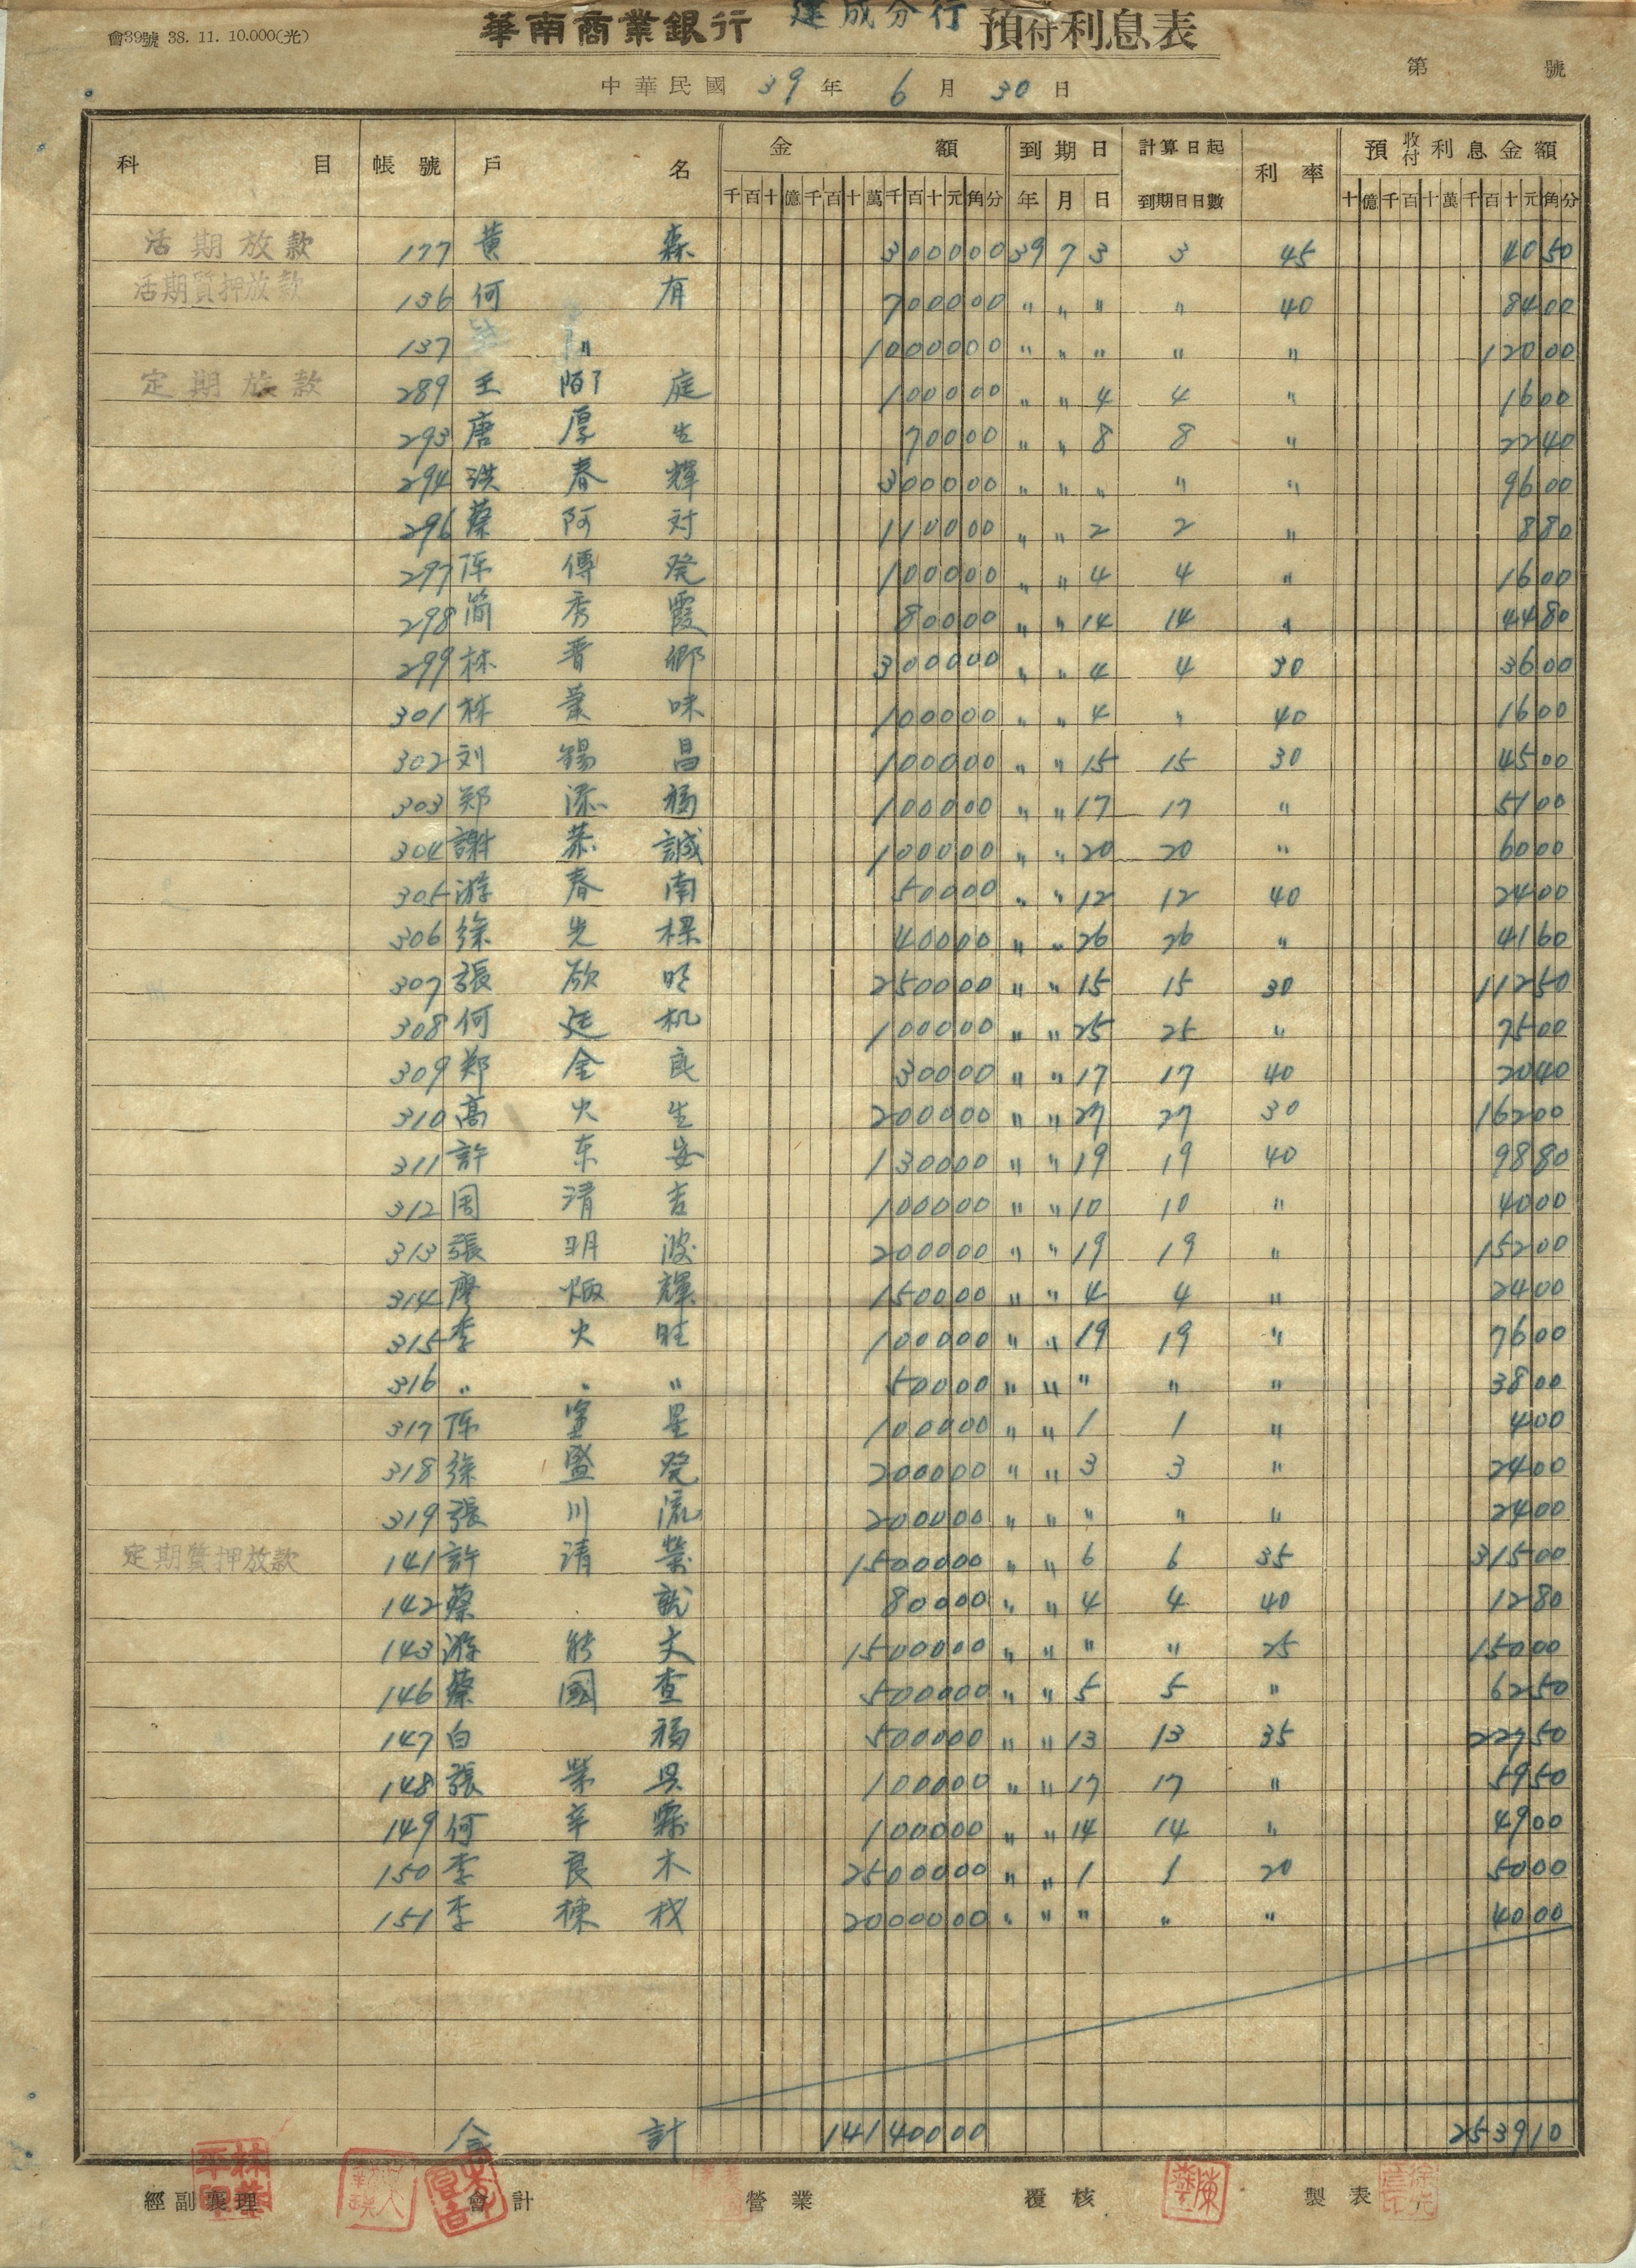 會39號 38. 11. 10.000(光)
華南商業銀行 建成分行 預付利息表
中華民國 39 年 6 月 30 日
第 號
科目 帳號 戶名 金額 到期日 計算日起到期日日數 利率 預收付利息金額
千百十億千百十萬千百十元角分 年 月 日 十億千百十萬千百十元角分
活期放款 177 黃 森 300000 39 7 3 3 45 4050
活期質押放款 136 何 有 700000 " " " " 40 8400
137 " 1000000 " " " " " 12000
定期放款 289 王 庭 100000 " " 4 4 " 1600
293 唐厚生 70000 " " 8 8 " 2240
294 洪春輝 300000 " " " " " 9600
296 蔡阿対 110000 " " 2 2 " 880
297 陈傳発 100000 " " 4 4 " 1600
298 简秀霞 80000 " " 14 14 " 4480
299 林晋鄉 300000 " " 4 4 30 3600
301 林葉味 100000 " " 4 " 40 1600
302 刘錫昌 100000 " " 15 15 30 4500
303 郑添福 100000 " " 17 17 " 5100
304 謝恭誠 100000 " " 20 20 " 6000
305 游春南 50000 " " 12 12 40 2400
306 徐先棵 40000 " " 26 26 " 4160
307 張欣旺 250000 " " 15 15 30 11250
308 何廷机 100000 " " 25 25 " 7500
309 郑金良 30000 " " 17 17 40 2040
310 高火生 200000 " " 27 27 30 16200
311 許东安 130000 " " 19 19 40 9880
312 周清吉 100000 " " 10 10 " 4000
313 張明波 200000 " " 19 19 " 15200
314 廖炳輝 150000 " " 4 4 " 2400
315 李火旺 100000 " " 19 19 " 7600
316 " " " 50000 " " " " " 3800
317 陈 星 100000 " " 1 1 " 400
318 徐盛発 200000 " " 3 3 " 2400
319 張川流 200000 " " " " " 2400
定期質押放款 141 許清榮 1500000 " " 6 6 35 31500
142 蔡 說 80000 " " 4 4 40 1280
143 游 文 1500000 " " " " 25 15000
146 蔡國查 500000 " " 5 5 " 6250
147 白 福 500000 " " 13 13 35 22750
148 張榮 100000 " " 17 17 " 5950
149 何辛霖 100000 " " 14 14 " 4900
150 李良木 2500000 " " 1 1 20 5000
151 李棟材 2000000 " " " " " 4000
合計 14140000 253910
經副襄理 會計 營業 覆核 製表